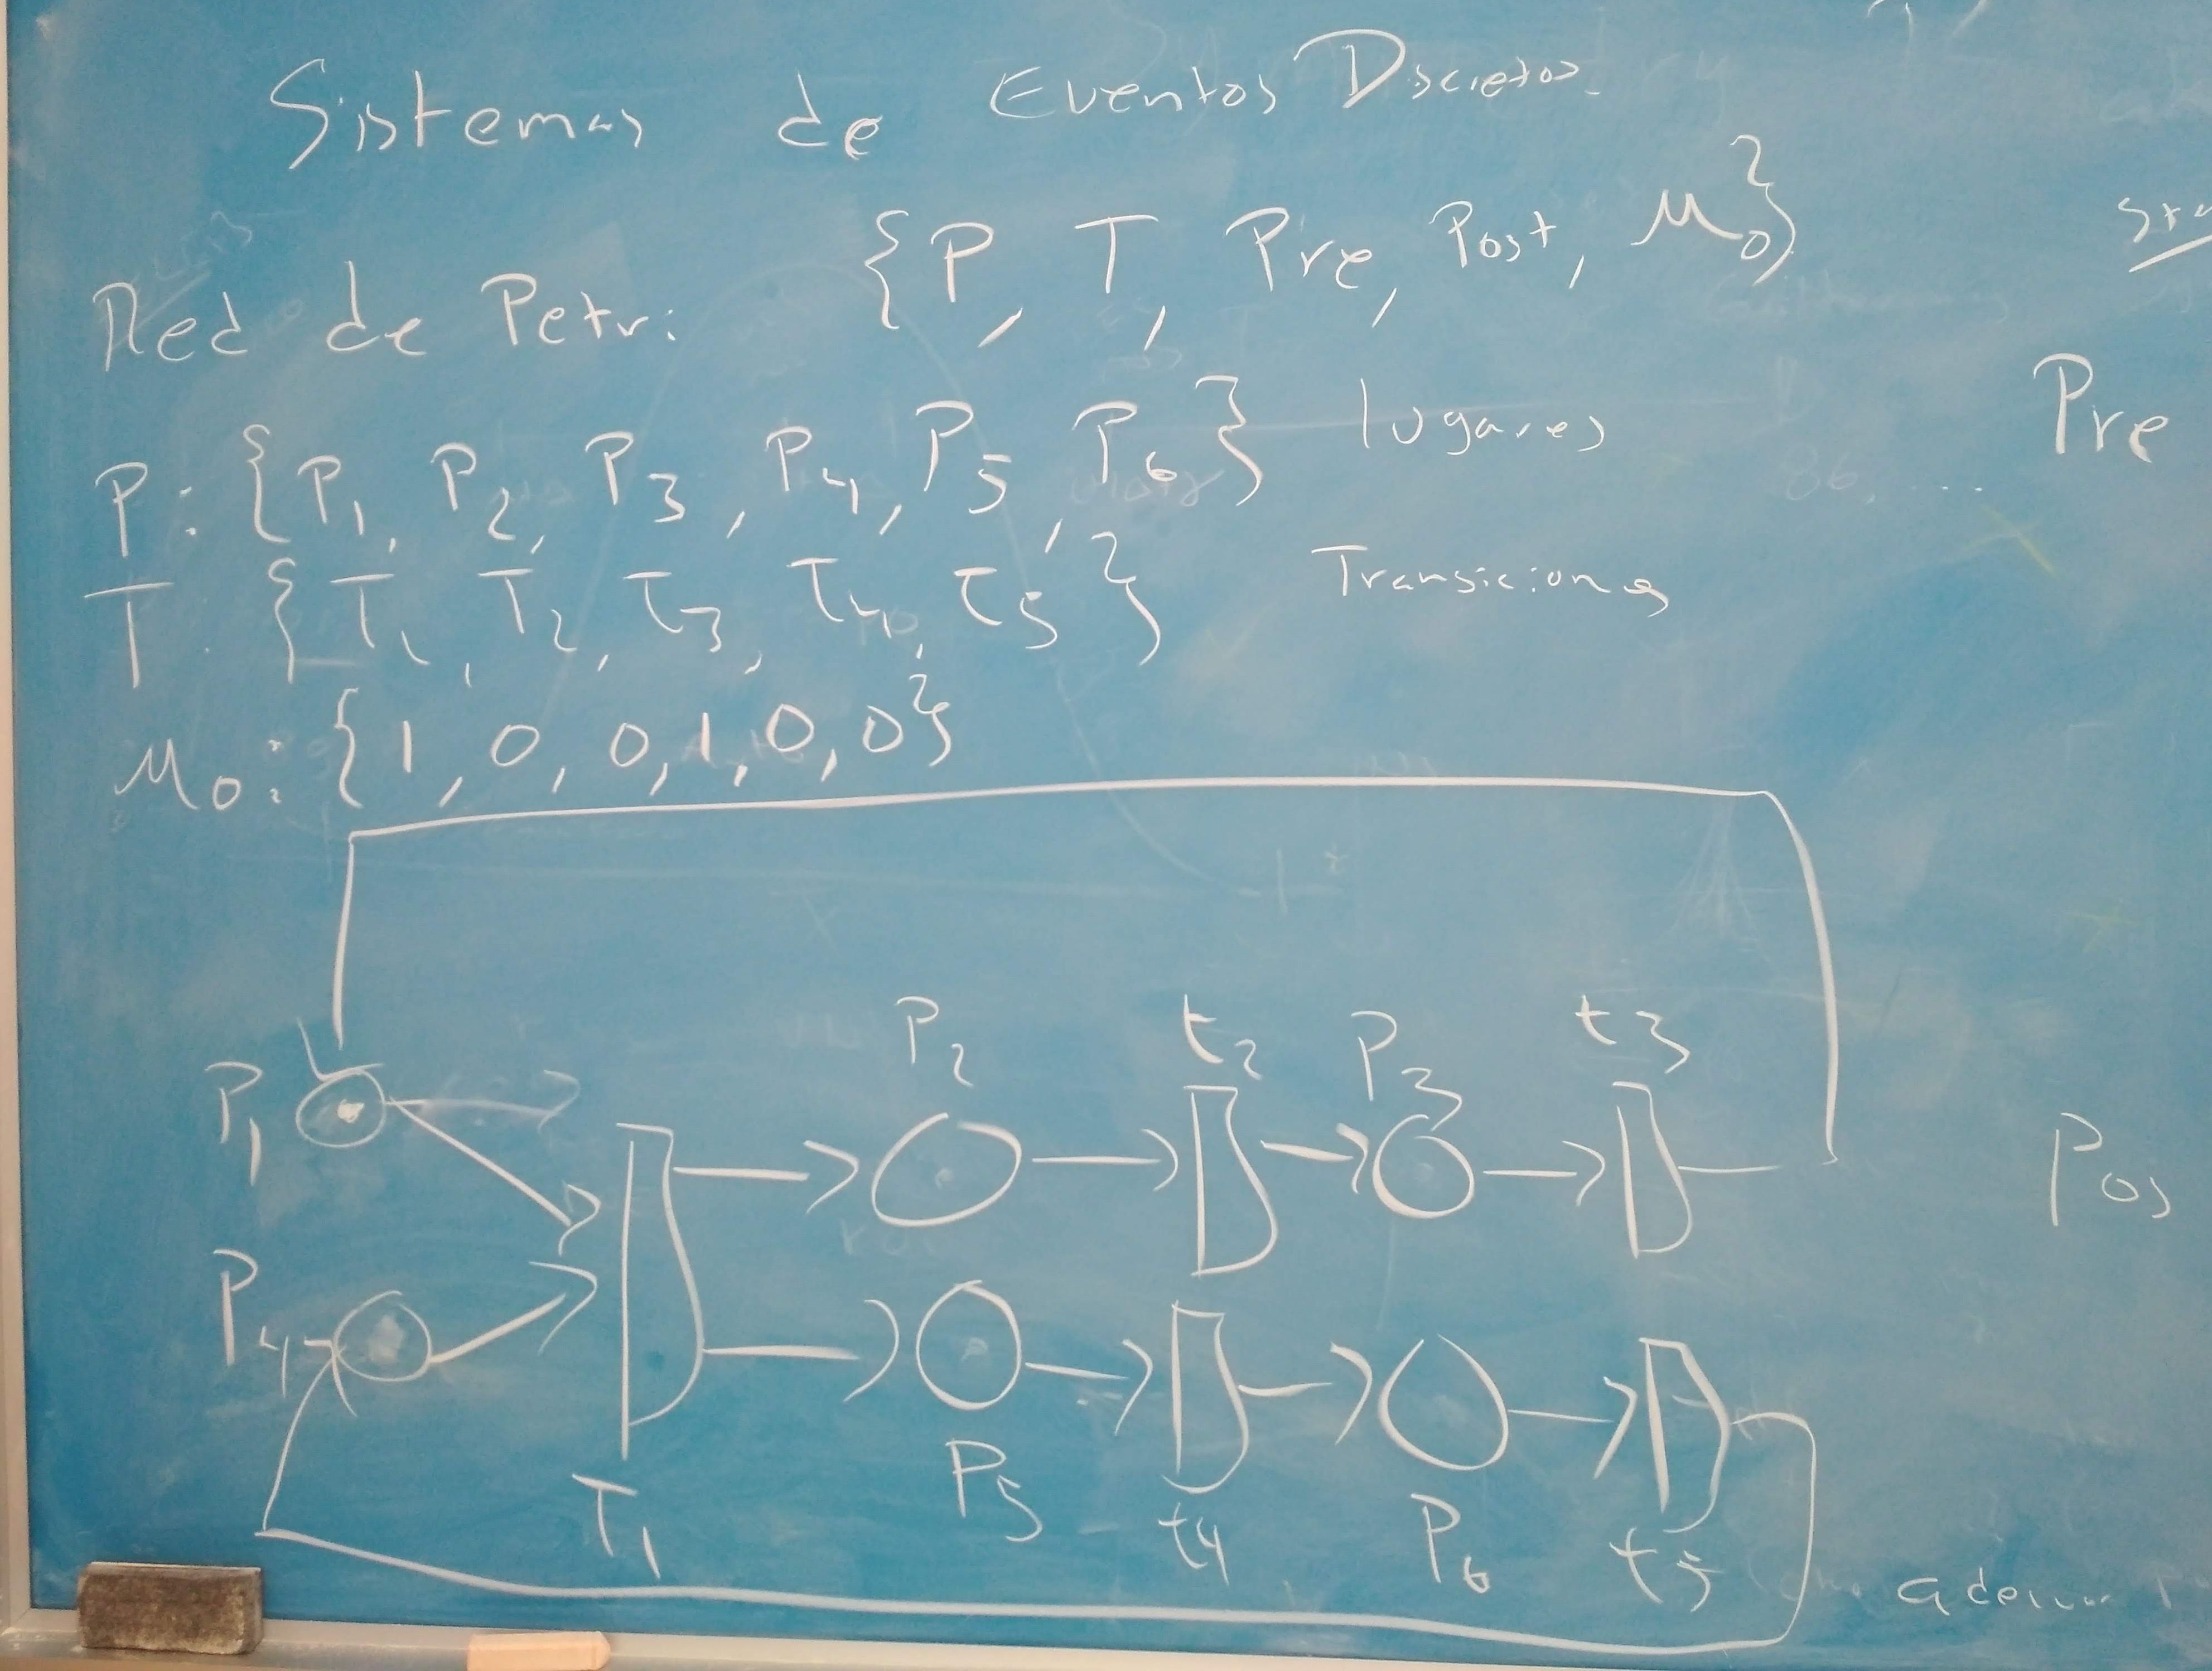 Sistemas de Eventos Discretos
Red de Petri {P, T, Pre, Post, M₀}
P: {P₁, P₂, P₃, P₄, P₅, P₆} lugares
T: {T₁, T₂, T₃, T₄, T₅} Transiciones
M₀: {1, 0, 0, 1, 0, 0}
Pre
P₂ t₂ P₃ t₃
P₁
Pos
P₄
T₁ P₅ t₄ P₆ t₅